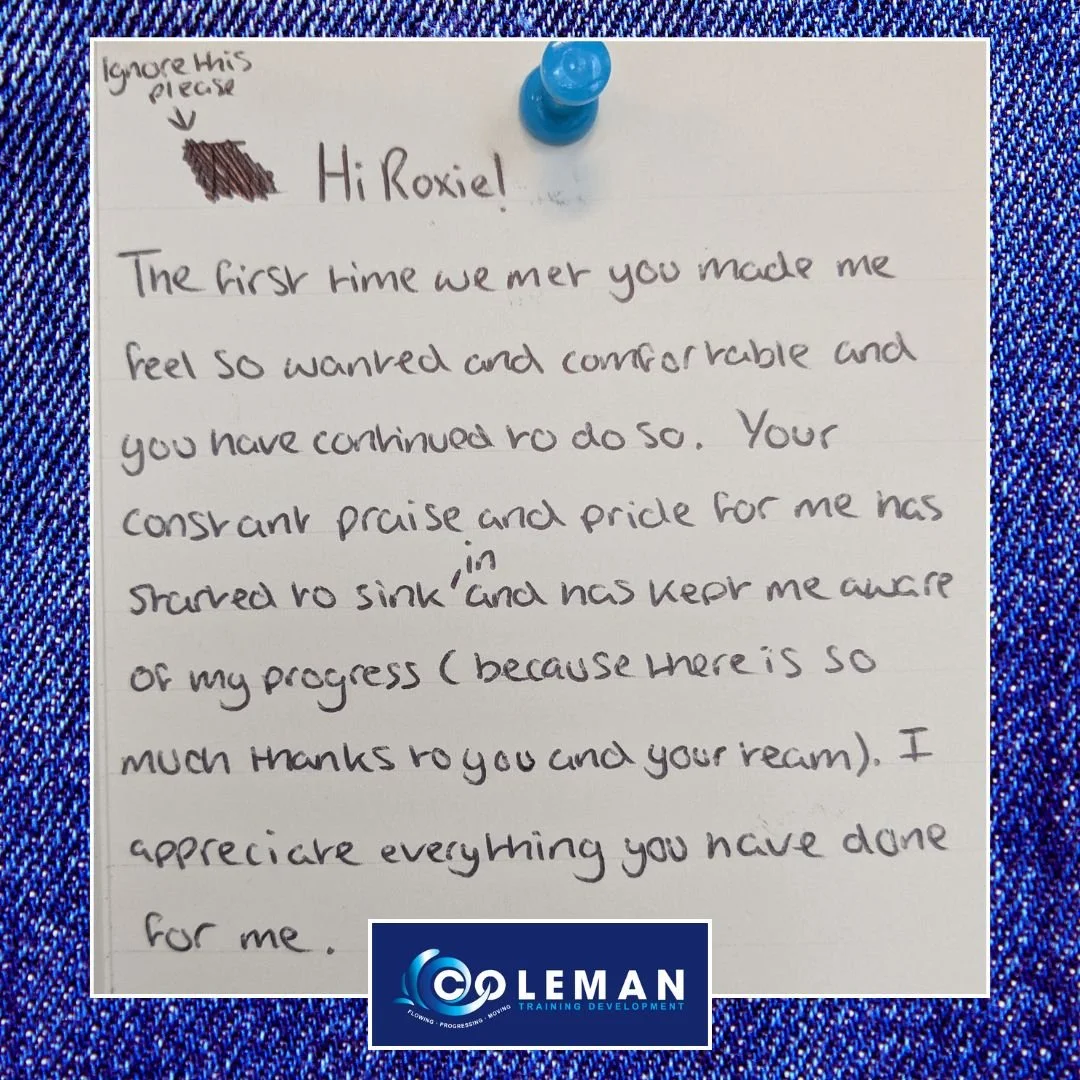 Ignore this
please
↓
Hi Roxie!
The first time we met you made me
feel so wanted and comfortable and
you have continued to do so. Your
constant praise and pride for me has
started to sink in and has kept me aware
of my progress (because there is so
much thanks to you and your team). I
appreciate everything you have done
for me.
COLEMAN
TRAINING DEVELOPMENT
FLOWING · PROGRESSING · MOVING